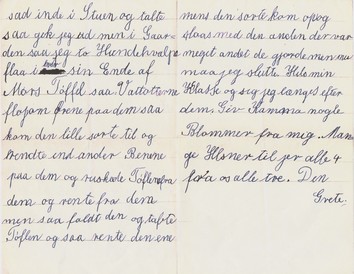 sad inde i Stuen og talte
saa gik jeg ud min i Gaar
den saa jeg to Hundehvalpe
flaa i sin Ende af
Mors Töffel saa Vattotterne
fløj om Ørene paa dem saa
kom den lille sorte til og
vendte ind Benene
paa dem og ruskede Töflen fra
dem og rente fra dem
men saa faldt den og tabte
Töflen og saa rente den ene
mens den sorte kom op og
slaas med den anden der var
meget andet de gjorde men nu
maa jeg slutte Hils min
Klasse og sig jeg længes efter
dem Giv Kamma nogle
Blommer fra mig. Man
ge Hilsner til jer alle 4
fra os alle tre. Den
Grete.